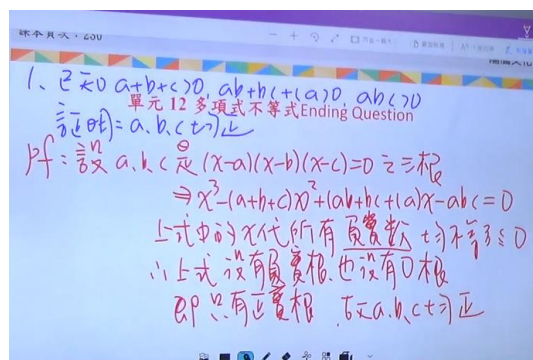 課本頁次：230
1、已知 a+b+c>0, ab+bc+ca>0, abc>0
單元 12 多項式不等式Ending Question
証明=a、b、c均正
pf：設 a、b、c 是 (x-a)(x-b)(x-c)=0 之三根
⇒x³-(a+b+c)x²+(ab+bc+ca)x-abc=0
上式中的x代所有負實數 均不等於0
∴上式沒有負實根、也沒有0根
即只有正實根 故a、b、c均正